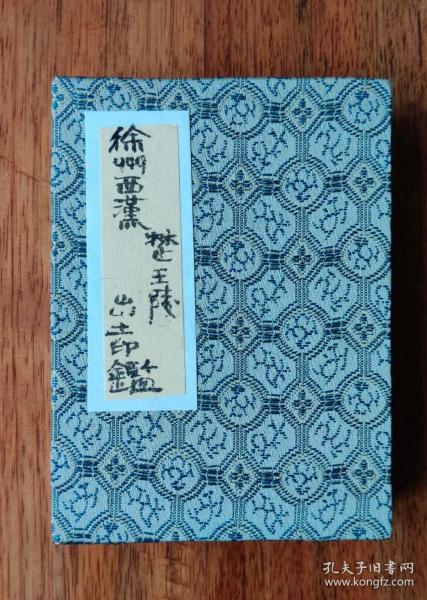 徐州西漢
楚王陵
出土印鑑
孔夫子旧书网
www.kongfz.com